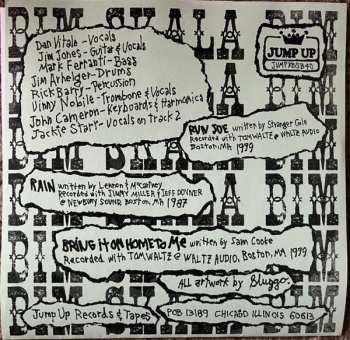 DIM SKALA BIM
Dan Vitale - Vocals
Jim Jones - Guitar & Vocals
Mark Ferranti - Bass
Jim Arhelger - Drums
Rick Barry - Percussion
Vinny Nobile - Trombone & Vocals
John Cameron - Keyboards & Harmonica
Jackie Starr - Vocals on Track 2
JUMP UP
RUN JOE written by Stranger Cole
Recorded with TOM WALTZ @ WALTZ AUDIO
Boston, MA 1999
RAIN written by Lennon & McCartney
Recorded with JIMMY MILLER & JEFF
@ NEWBURY SOUND Boston, MA 1987
BRING IT ON HOME TO ME written by Sam Cooke
Recorded with TOM WALTZ @ WALTZ AUDIO, Boston, MA 1999
ALL artwork by Bluggo.
Jump Up Records & Tapes
POB 13189 CHICAGO ILLINOIS 60613